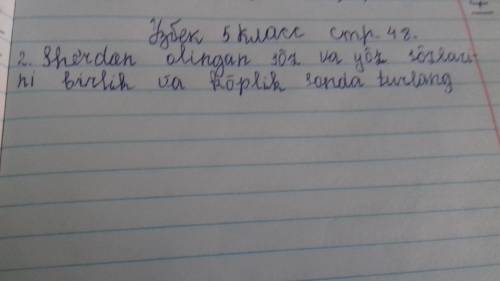 Узбек 5 класс стр. 48.
2. Sherdan olingan sōz va yōz sōzlari-
ni birlik va kōplik sonda turlang